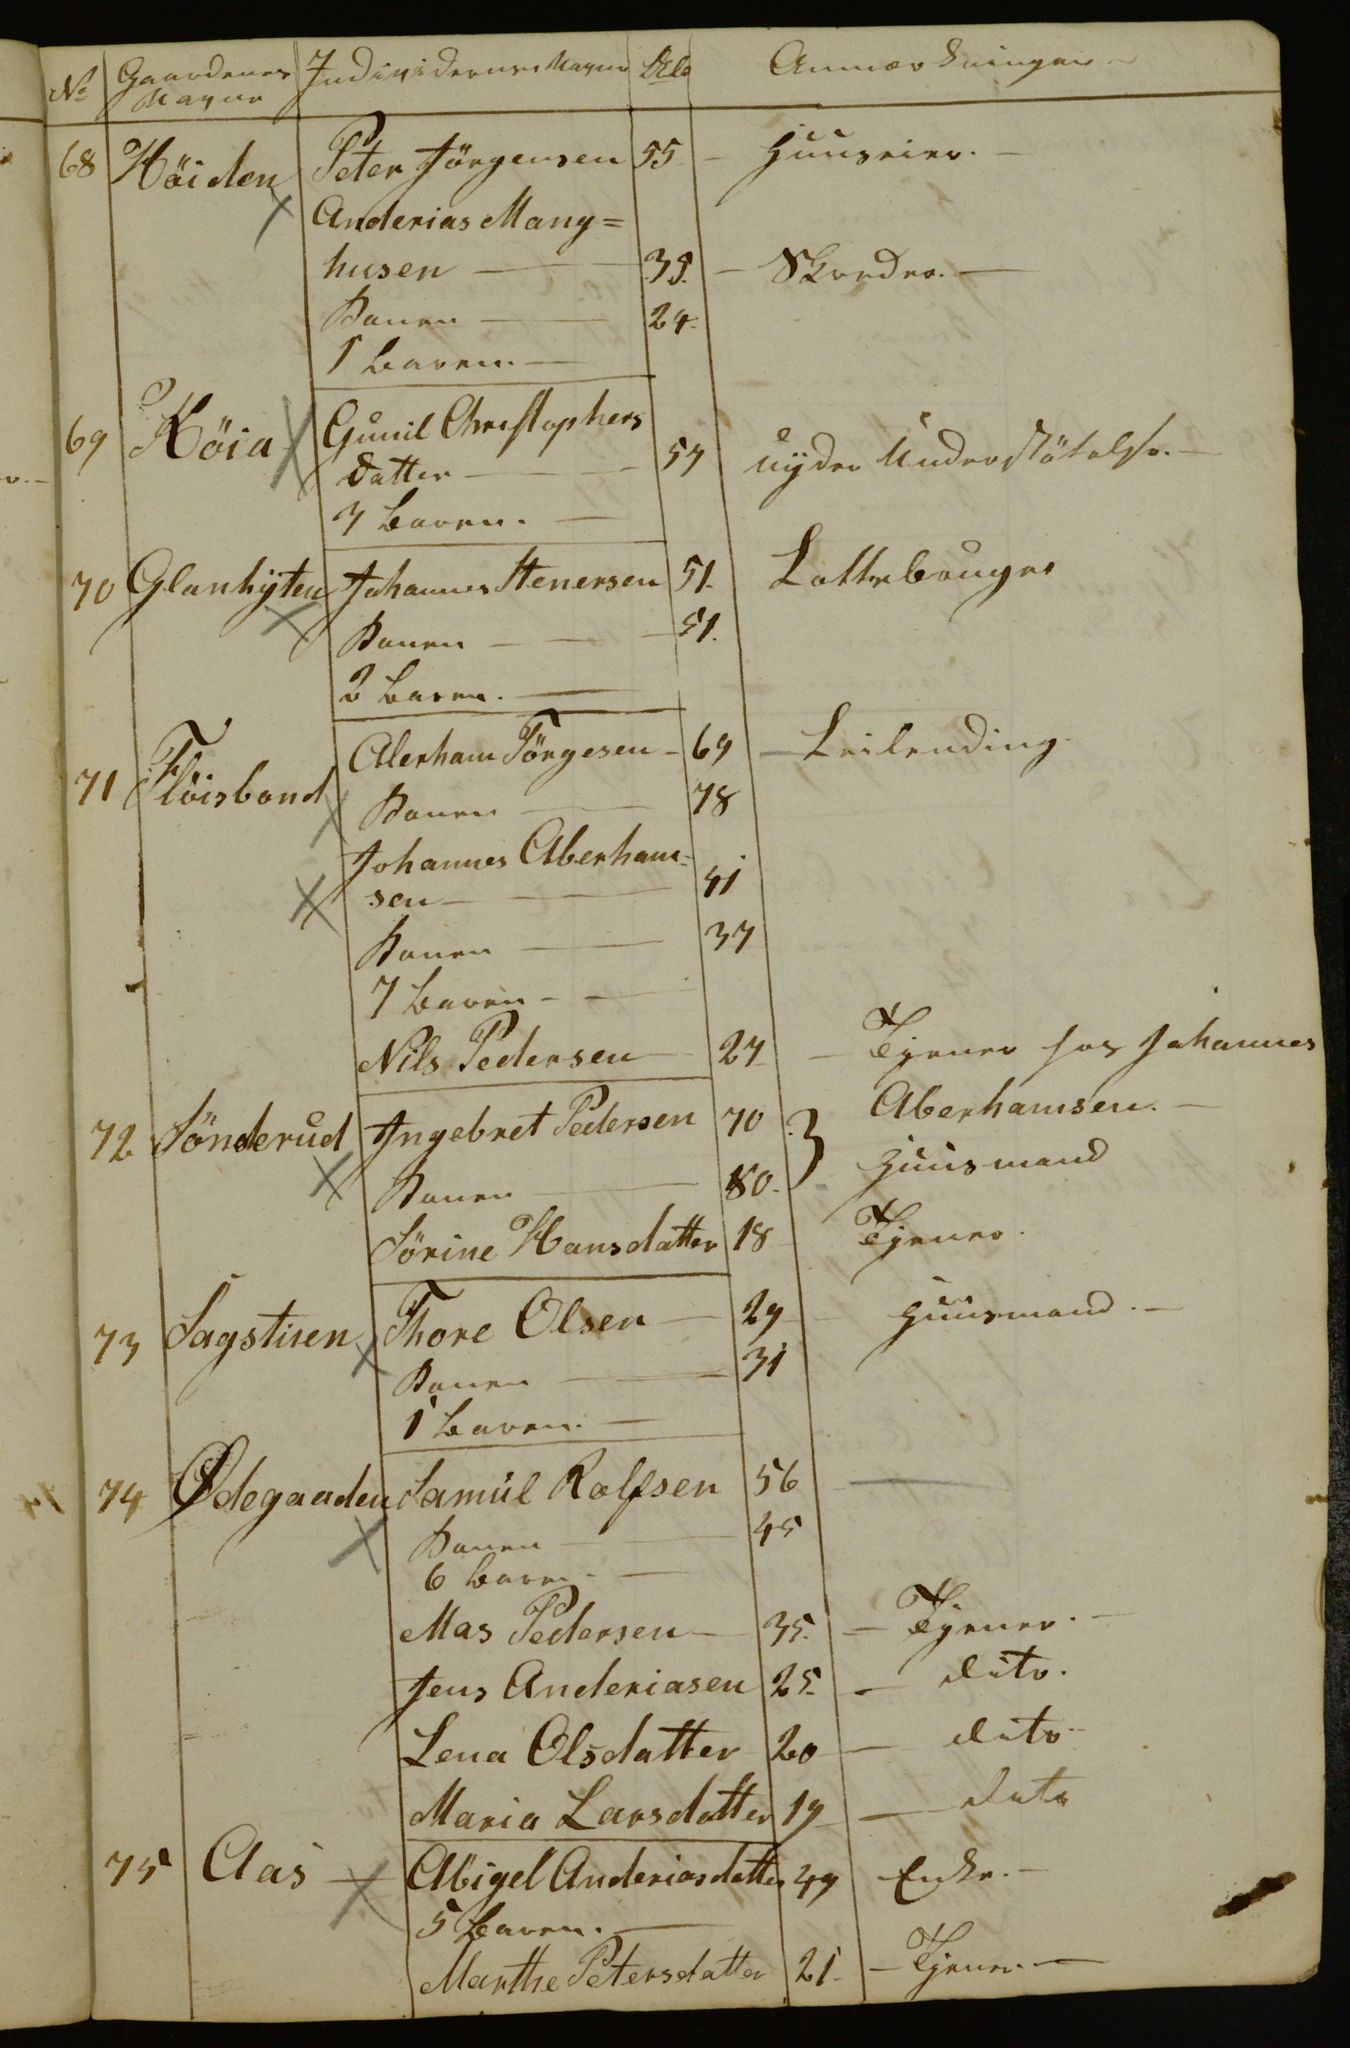 No Gaardenes Individernes Navne Alder Anmærkninger
Navne
68 Höiden Peter Jörgensen 55 - Huuseier. -
Anderias Mang=
husen - 35. - Skreder. -
Konen - 24.
1 Baren. -
69 Köia Gunil Christophers
datter - 57 nyder Understötelse. -
3 Baren. -
70 Glanhyten Johannes Stenersen 51. Lottebruger
Konen - 51.
2 Baren. -
71 Flöisbond Aberham Törgesen - 69 - Leilending
Konen - 78
Johannes Aberham-
sen - 41
Konen - 37
7 Baren - -
Nils Pedersen - 27 - Tjener hos Johannes
Aberhamsen. -
72 Sönderud Ingebret Pedersen 70 } Huusmand
Konen - 80.
Sörine Hansdatter 18 Tjener.
73 Sagstuen Thore Olsen - 29 - Huusmand. -
Konen - 31
1 Baren. -
74 Ødegaaden Samuel Rolfsen 56 -
Konen - 45
6 Baren. -
Mas Pedersen - 35. - Tjener. -
Jens Anderiasen 25. - dito.
Lena Olsdatter 20 - dito
Maria Larsdatter 19 - dito
75 Aas - Abigel Anderiasdatter 49 Enke. -
5 Baren. -
Marthe Petersdatter 21. - Tjener. -